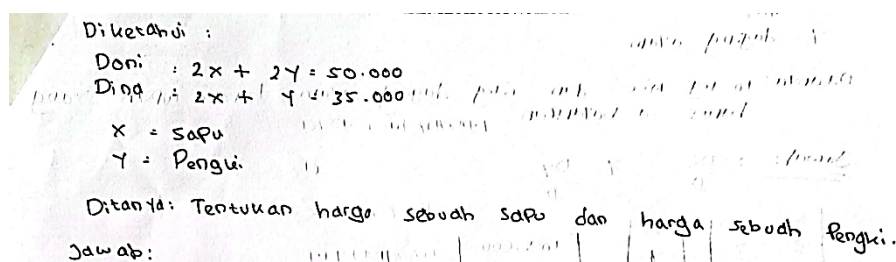 Diketahui :
Doni : 2x + 2Y = 50.000
Dina : 2x + Y = 35.000
X = Sapu
Y = Pengki
Ditanya: Tentukan harga sebuah sapu dan harga sebuah Pengki.
Jawab: